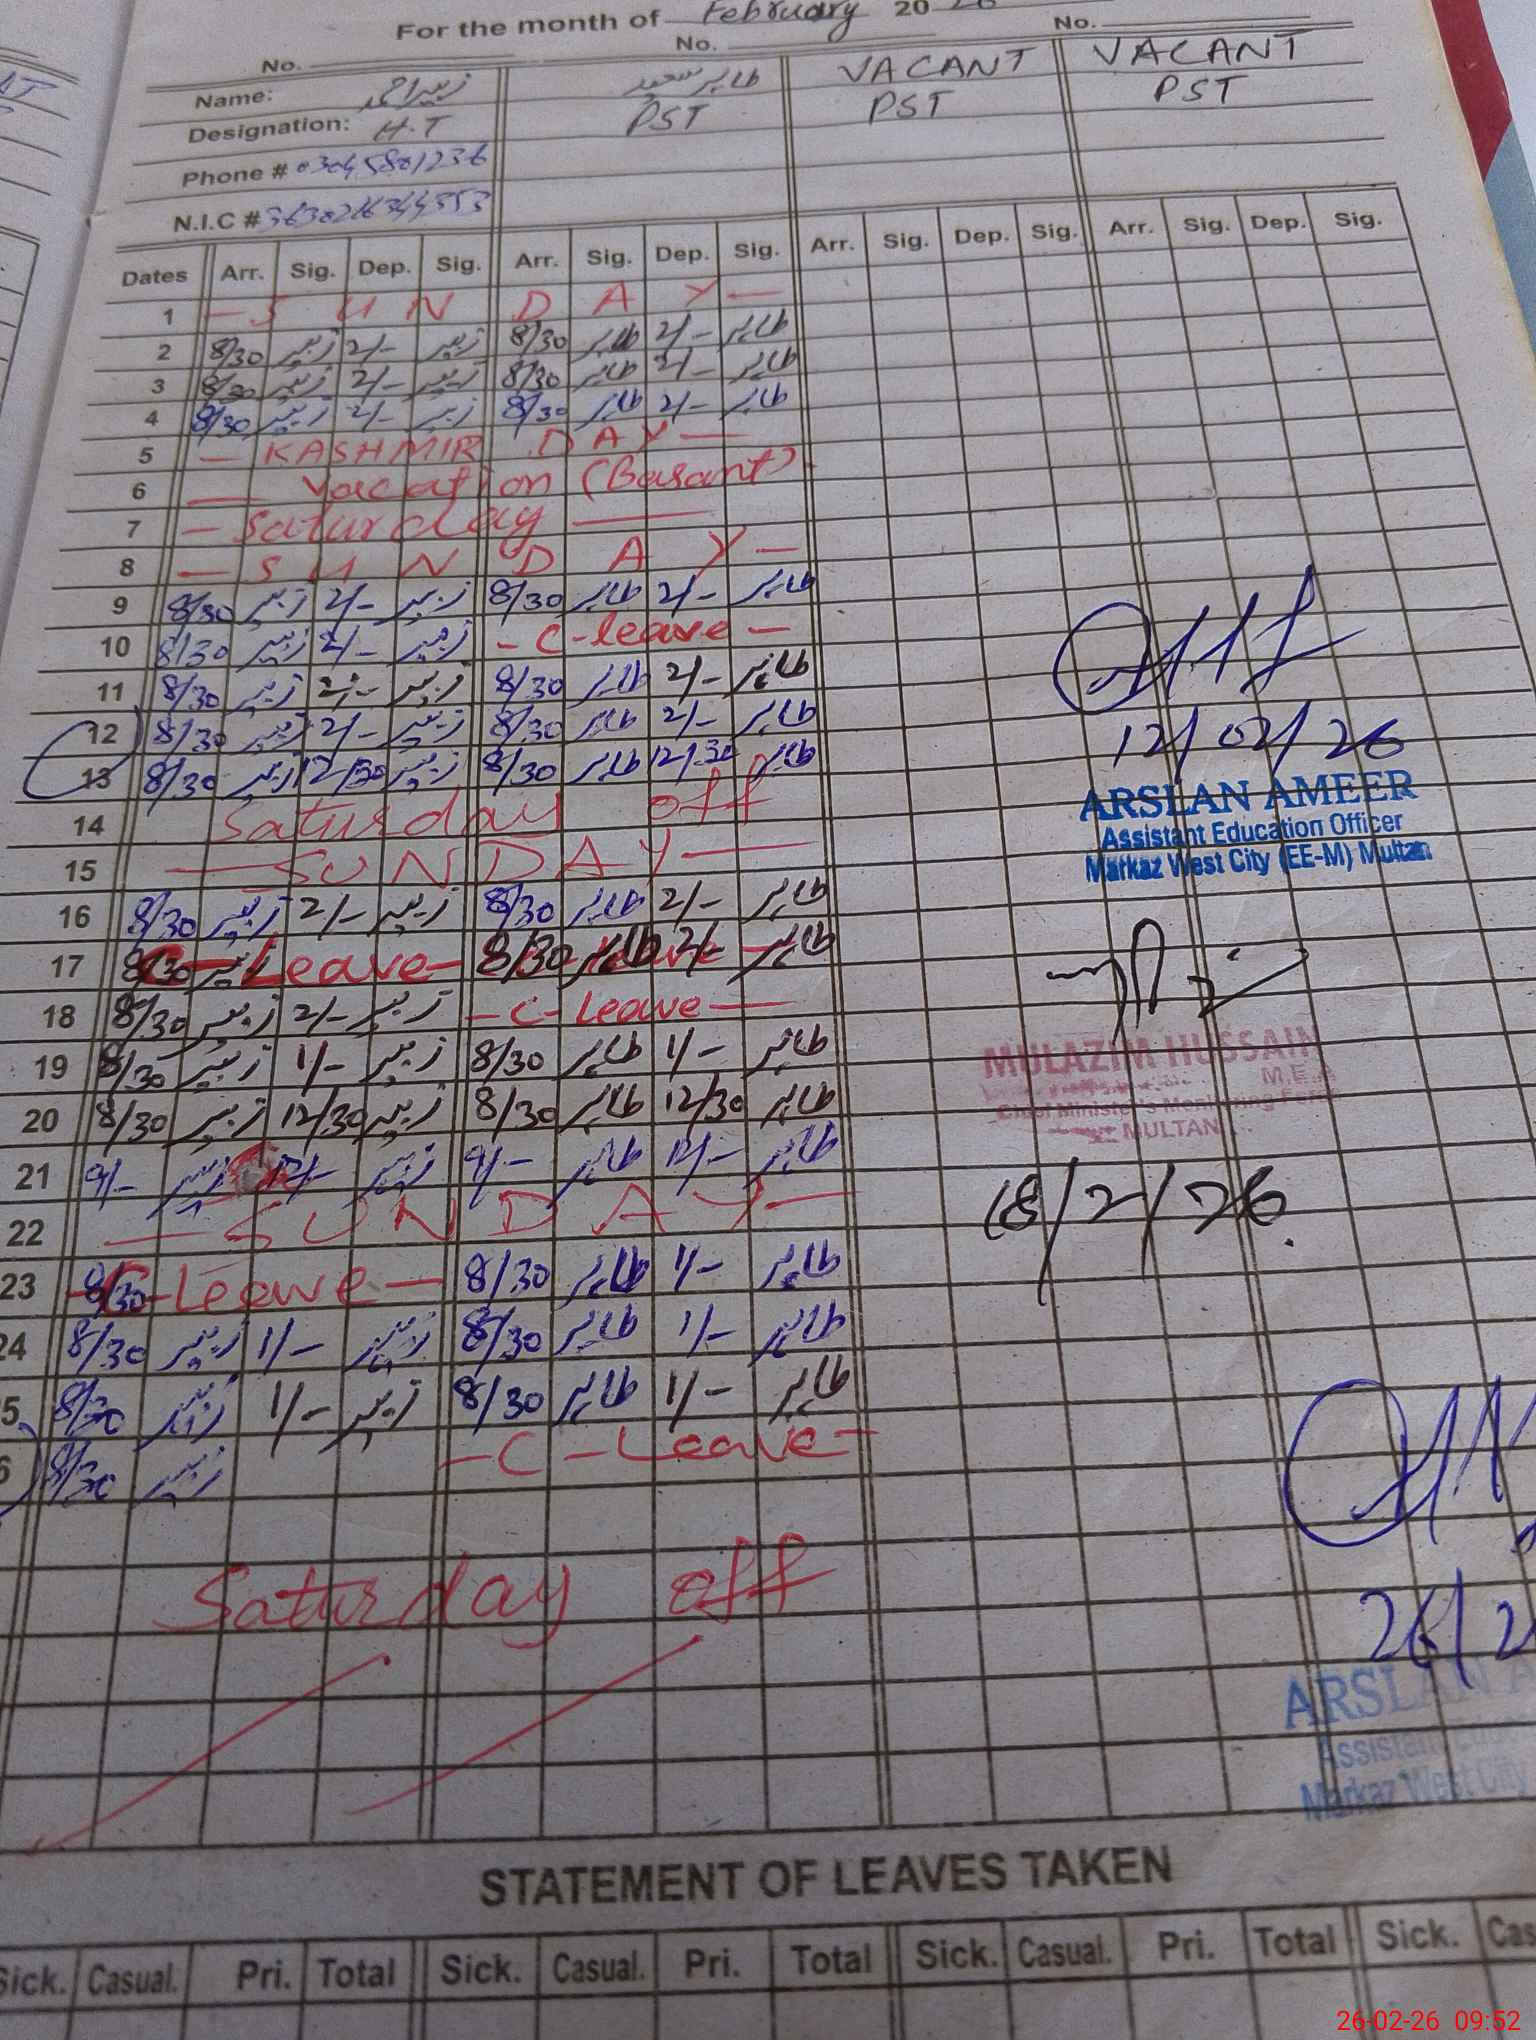 For the month of February 20 26
No. No. No.
Name: زبیر احمد طاہر سعید VACANT VACANT
Designation: H.T PST PST PST
Phone # 03045801236
N.I.C # 3630216344353
Dates Arr. Sig. Dep. Sig. Arr. Sig. Dep. Sig. Arr. Sig. Dep. Sig. Arr. Sig. Dep. Sig.
1 - S U N D A Y -
2 8/30 زبیر 2/- زبیر 8/30 طاہر 2/- طاہر
3 8/30 زبیر 2/- زبیر 8/30 طاہر 2/- طاہر
4 8/30 زبیر 2/- زبیر 8/30 طاہر 2/- طاہر
5 - KASHMIR DAY -
6 - Vacation (Basant).
7 - Saturday -
8 - S U N D A Y -
9 8/30 زبیر 2/- زبیر 8/30 طاہر 2/- طاہر
10 8/30 زبیر 2/- زبیر - C-leave -
11 8/30 زبیر 2/- زبیر 8/30 طاہر 2/- طاہر
12 8/30 زبیر 2/- زبیر 8/30 طاہر 2/- طاہر
13 8/30 زبیر 12/30 زبیر 8/30 طاہر 12/30 طاہر
14 Saturday off
15 - S U N D A Y -
16 8/30 زبیر 2/- زبیر 8/30 طاہر 2/- طاہر
17 8/30 زبیر C-Leave- 8/30 طاہر 2/- طاہر
18 8/30 زبیر 2/- زبیر - C-Leave -
19 8/30 زبیر 1/- زبیر 8/30 طاہر 1/- طاہر
20 8/30 زبیر 12/30 زبیر 8/30 طاہر 12/30 طاہر
21 9/- زبیر 12/- زبیر 9/- طاہر 12/- طاہر
22 - S U N D A Y -
23 8/30 -C-Leave- 8/30 طاہر 1/- طاہر
24 8/30 زبیر 1/- زبیر 8/30 طاہر 1/- طاہر
5 8/30 زبیر 1/- زبیر 8/30 طاہر 1/- طاہر
6 8/30 زبیر -C-Leave-
Saturday off
12/02/26
ARSLAN AMEER
Assistant Education Officer
Markaz West City (EE-M) Multan
MULAZIM HUSSAIN
M.E.A
Chief Minister's Monitoring Force
MULTAN
18/2/26.
26/2
ARSLAN A
Assistant Edu
Markaz West City
STATEMENT OF LEAVES TAKEN
Sick. Casual. Pri. Total Sick. Casual. Pri. Total Sick. Casual. Pri. Total Sick. Cas
26-02-26 09:52